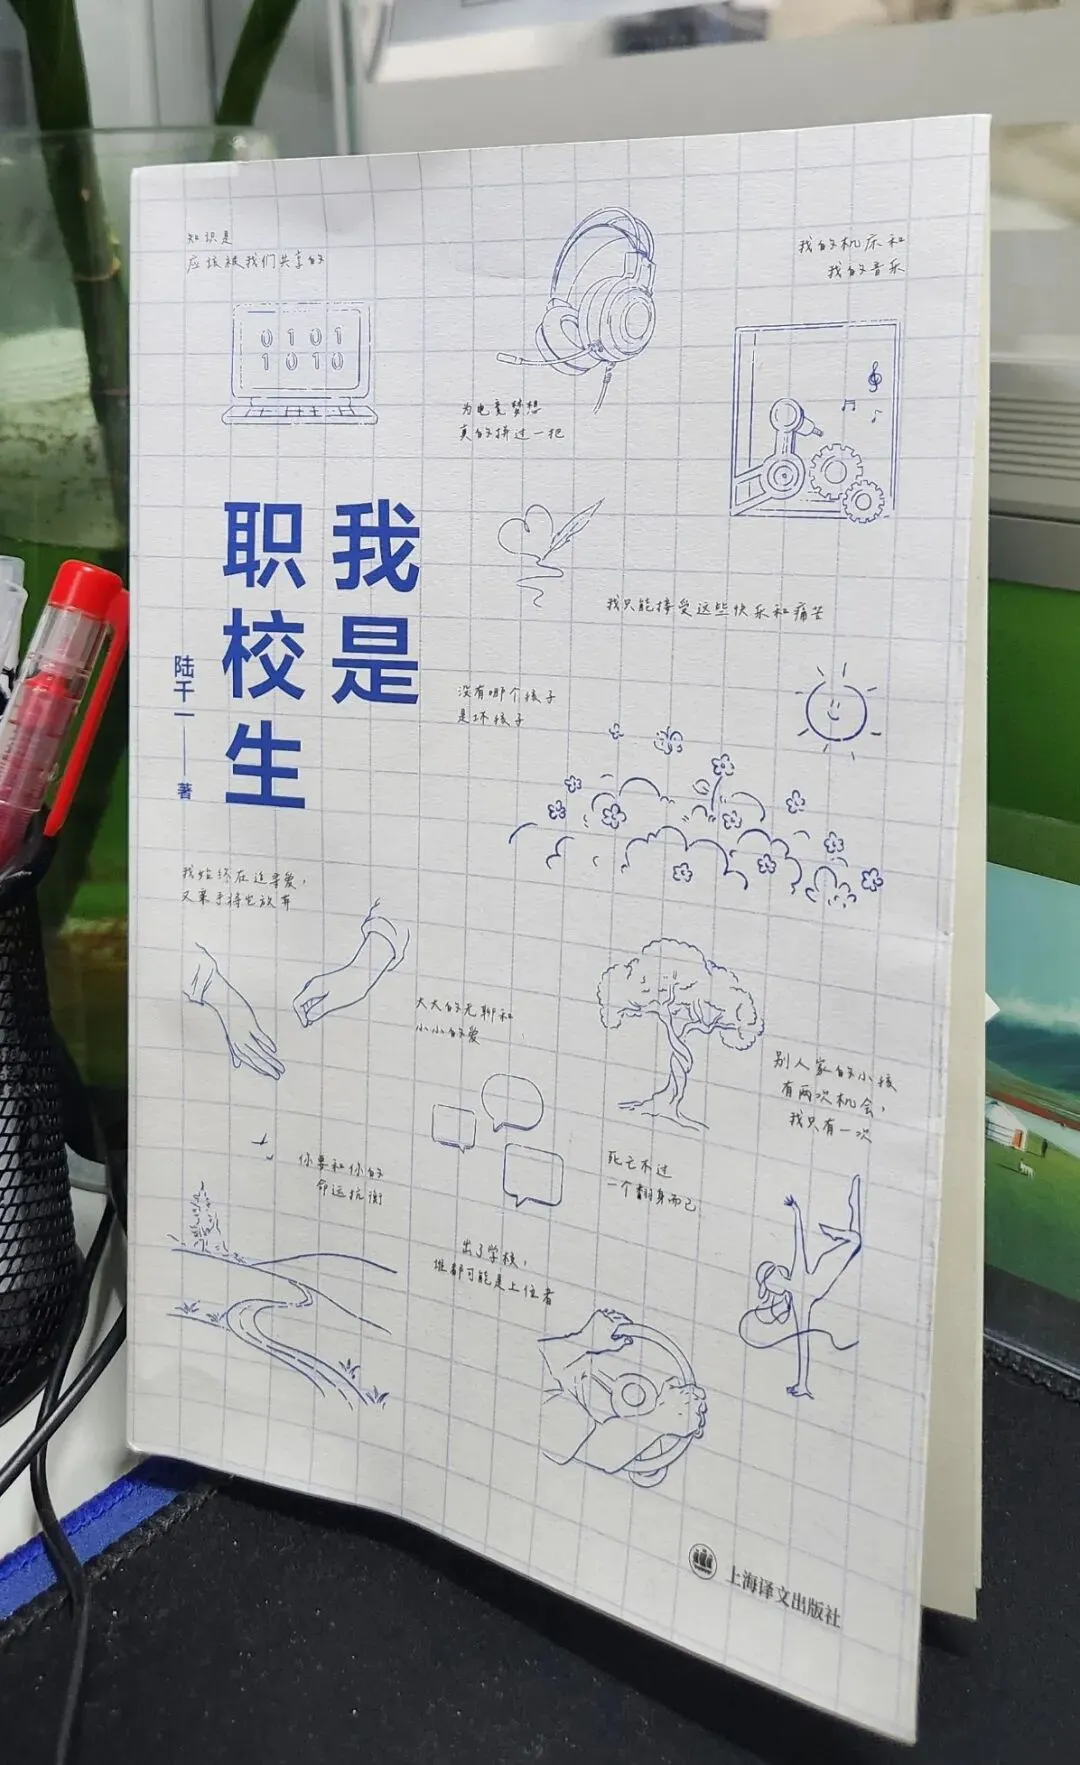 知识是
应该被我们共享的
0101
1010
为电竞梦想
真的拼过一把
我的机床和
我的音乐
我是
职校生
陆千一
著
我只能接受这些快乐和痛苦
没有哪个孩子
是坏孩子
我始终在追寻爱，
又亲手将它放弃
大大的无聊和
小小的爱
别人家的小孩
有两次机会，
我只有一次
你要和你的
命运抗衡
死亡不过
一个翻身而已
出了学校，
谁都可能是上位者
上海译文出版社